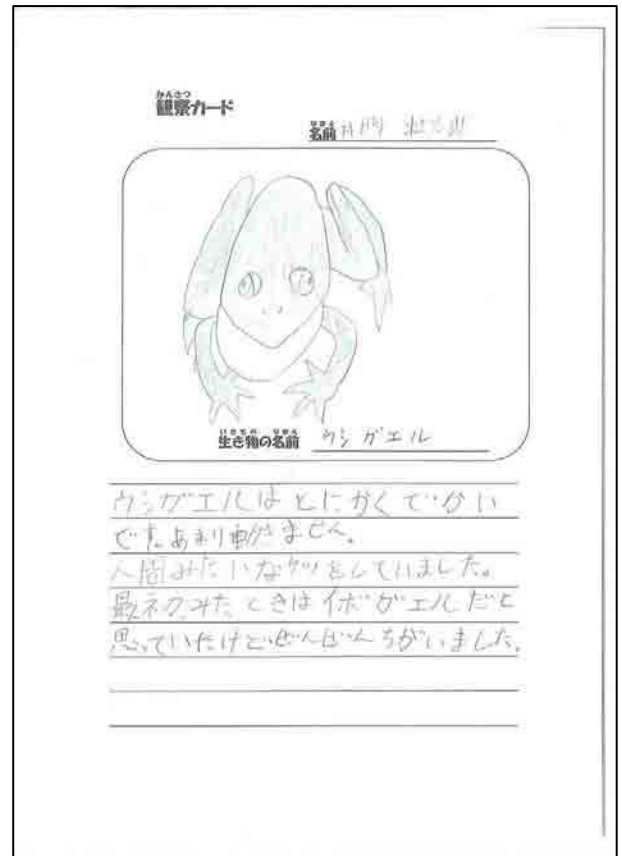 かんさつ
観察カード
なまえ
名前 井門
いきもの なまえ
生き物の名前 ウシガエル
ウシガエルはとにかくでかい
です。あまり動きません。
人間みたいなケツをしていました。
最初みたときはイボガエルだと
思っていたけどぜんぜんちがいました。